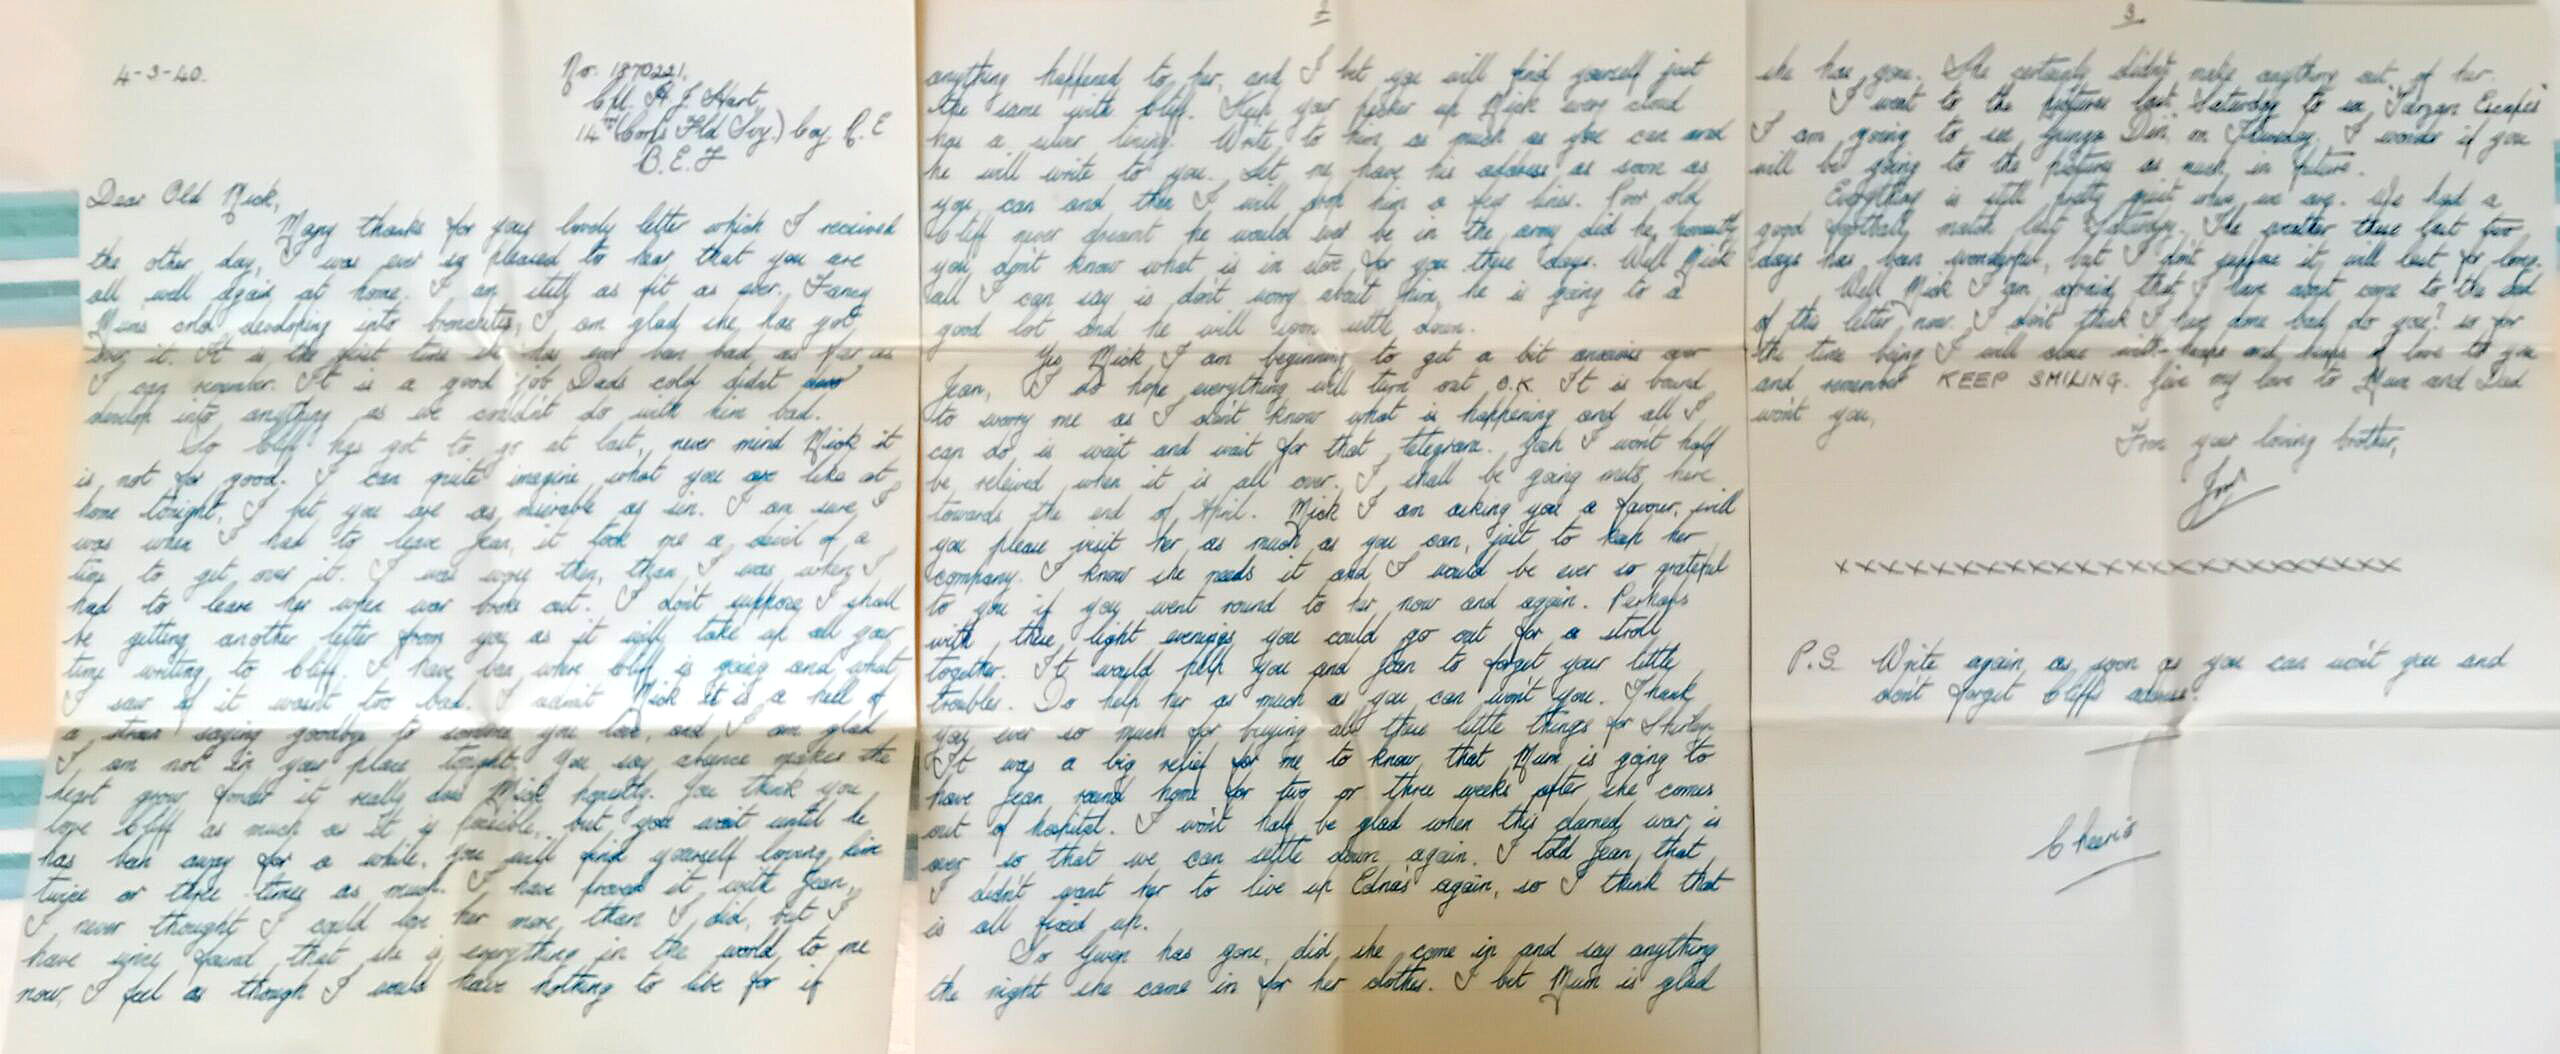 4-3-40.
No. 1870221.
Cpl. A J Hart,
14th (Corps Fld Svy.) Coy. R.E
B.E.F
Dear Old Mick,
Many thanks for your lovely letter which I received
the other day, I was ever so pleased to hear that you are
all well again at home. I am still as fit as ever. Fancy
Mums cold developing into bronchitis, I am glad she has got
over it. It is the first time she has ever been bad as far as
I can remember. It is a good job Dads cold didnt
develop into anything as we couldn't do with him bad.
So Cliff has got to go at last, never mind Mick it
is not for good. I can quite imagine what you are like at
home tonight, I bet you are as miserable as sin. I am sure I
was when I had to leave Jean, it took me a devil of a
time to get over it. I was worse then, than I was when I
had to leave her when war broke out. I don't suppose I shall
be getting another letter from you as it will take up all your
time writing to Cliff. I have been where Cliff is going and what
I saw of it wasnt too bad. I admit Mick it is a hell of
a strain saying goodbye to someone you love, and I am glad
I am not in your place tonight. You say absence makes the
heart grow fonder it really does Mick honestly. You think you
love Cliff as much as it is possible, but you wait until he
has been away for a while, you will find yourself loving him
twice or three times as much. I have proved it with Jean,
I never thought I could love her more than I did, but I
have since found that she is everything in the world to me
now, I feel as though I would have nothing to live for if
2
anything happened to her, and I bet you will find yourself just
the same with Cliff. Keep your pecker up Mick every cloud
has a silver lining. Write to him as much as you can and
he will write to you. Let me have his address as soon as
you can and then I will drop him a few lines. Poor old
Cliff never dreamt he would ever be in the army did he, honestly
you don't know what is in store for you these days. Well Mick
all I can say is don't worry about him, he is going to a
good lot and he will soon settle down.
Yes Mick I am beginning to get a bit anxious over
Jean, I do hope everything will turn out O.K. It is bound
to worry me as I don't know what is happening and all I
can do is wait and wait for that telegram. Gosh I won't half
be relieved when it is all over. I shall be going nuts here
towards the end of April. Mick I am asking you a favour, will
you please visit her as much as you can, just to keep her
company. I know she needs it and I would be ever so grateful
to you if you went round to her now and again. Perhaps
with these light evenings you could go out for a stroll
together. It would help you and Jean to forget your little
troubles. Do help her as much as you can won't you. Thank
you ever so much for buying all those little things for Shirley.
It was a big relief for me to know that Mum is going to
have Jean round home for two or three weeks after she comes
out of hospital. I won't half be glad when this darned war is
over so that we can settle down again. I told Jean that
I didn't want her to live up Edna's again, so I think that
is all fixed up.
So Gwen has gone, did she come in and say anything
the night she came in for her clothes. I bet Mum is glad
3
she has gone. She certainly didn't make anything out of her.
I went to the pictures last Saturday to see "Tarzan Escapes"
I am going to see "Gunga Din" on Thursday. I wonder if you
will be going to the pictures as much in future.
Everything is still pretty quiet where we are. We had a
good football match last Saturday. The weather these last two
days has been wonderful, but I don't suppose it will last for long.
Well Mick I am afraid that I have come to the end
of this letter now. I don't think I have done bad, do you? so for
the time being I will close with heaps and heaps of love to you
and remember KEEP SMILING. Give my love to Mum and Dad
won't you,
From your loving brother,
xxxxxxxxxxxxxxxxxxxxxxxxxxxxxx
P.S. Write again as soon as you can won't you and
don't forget Cliffs address.
Cheerio